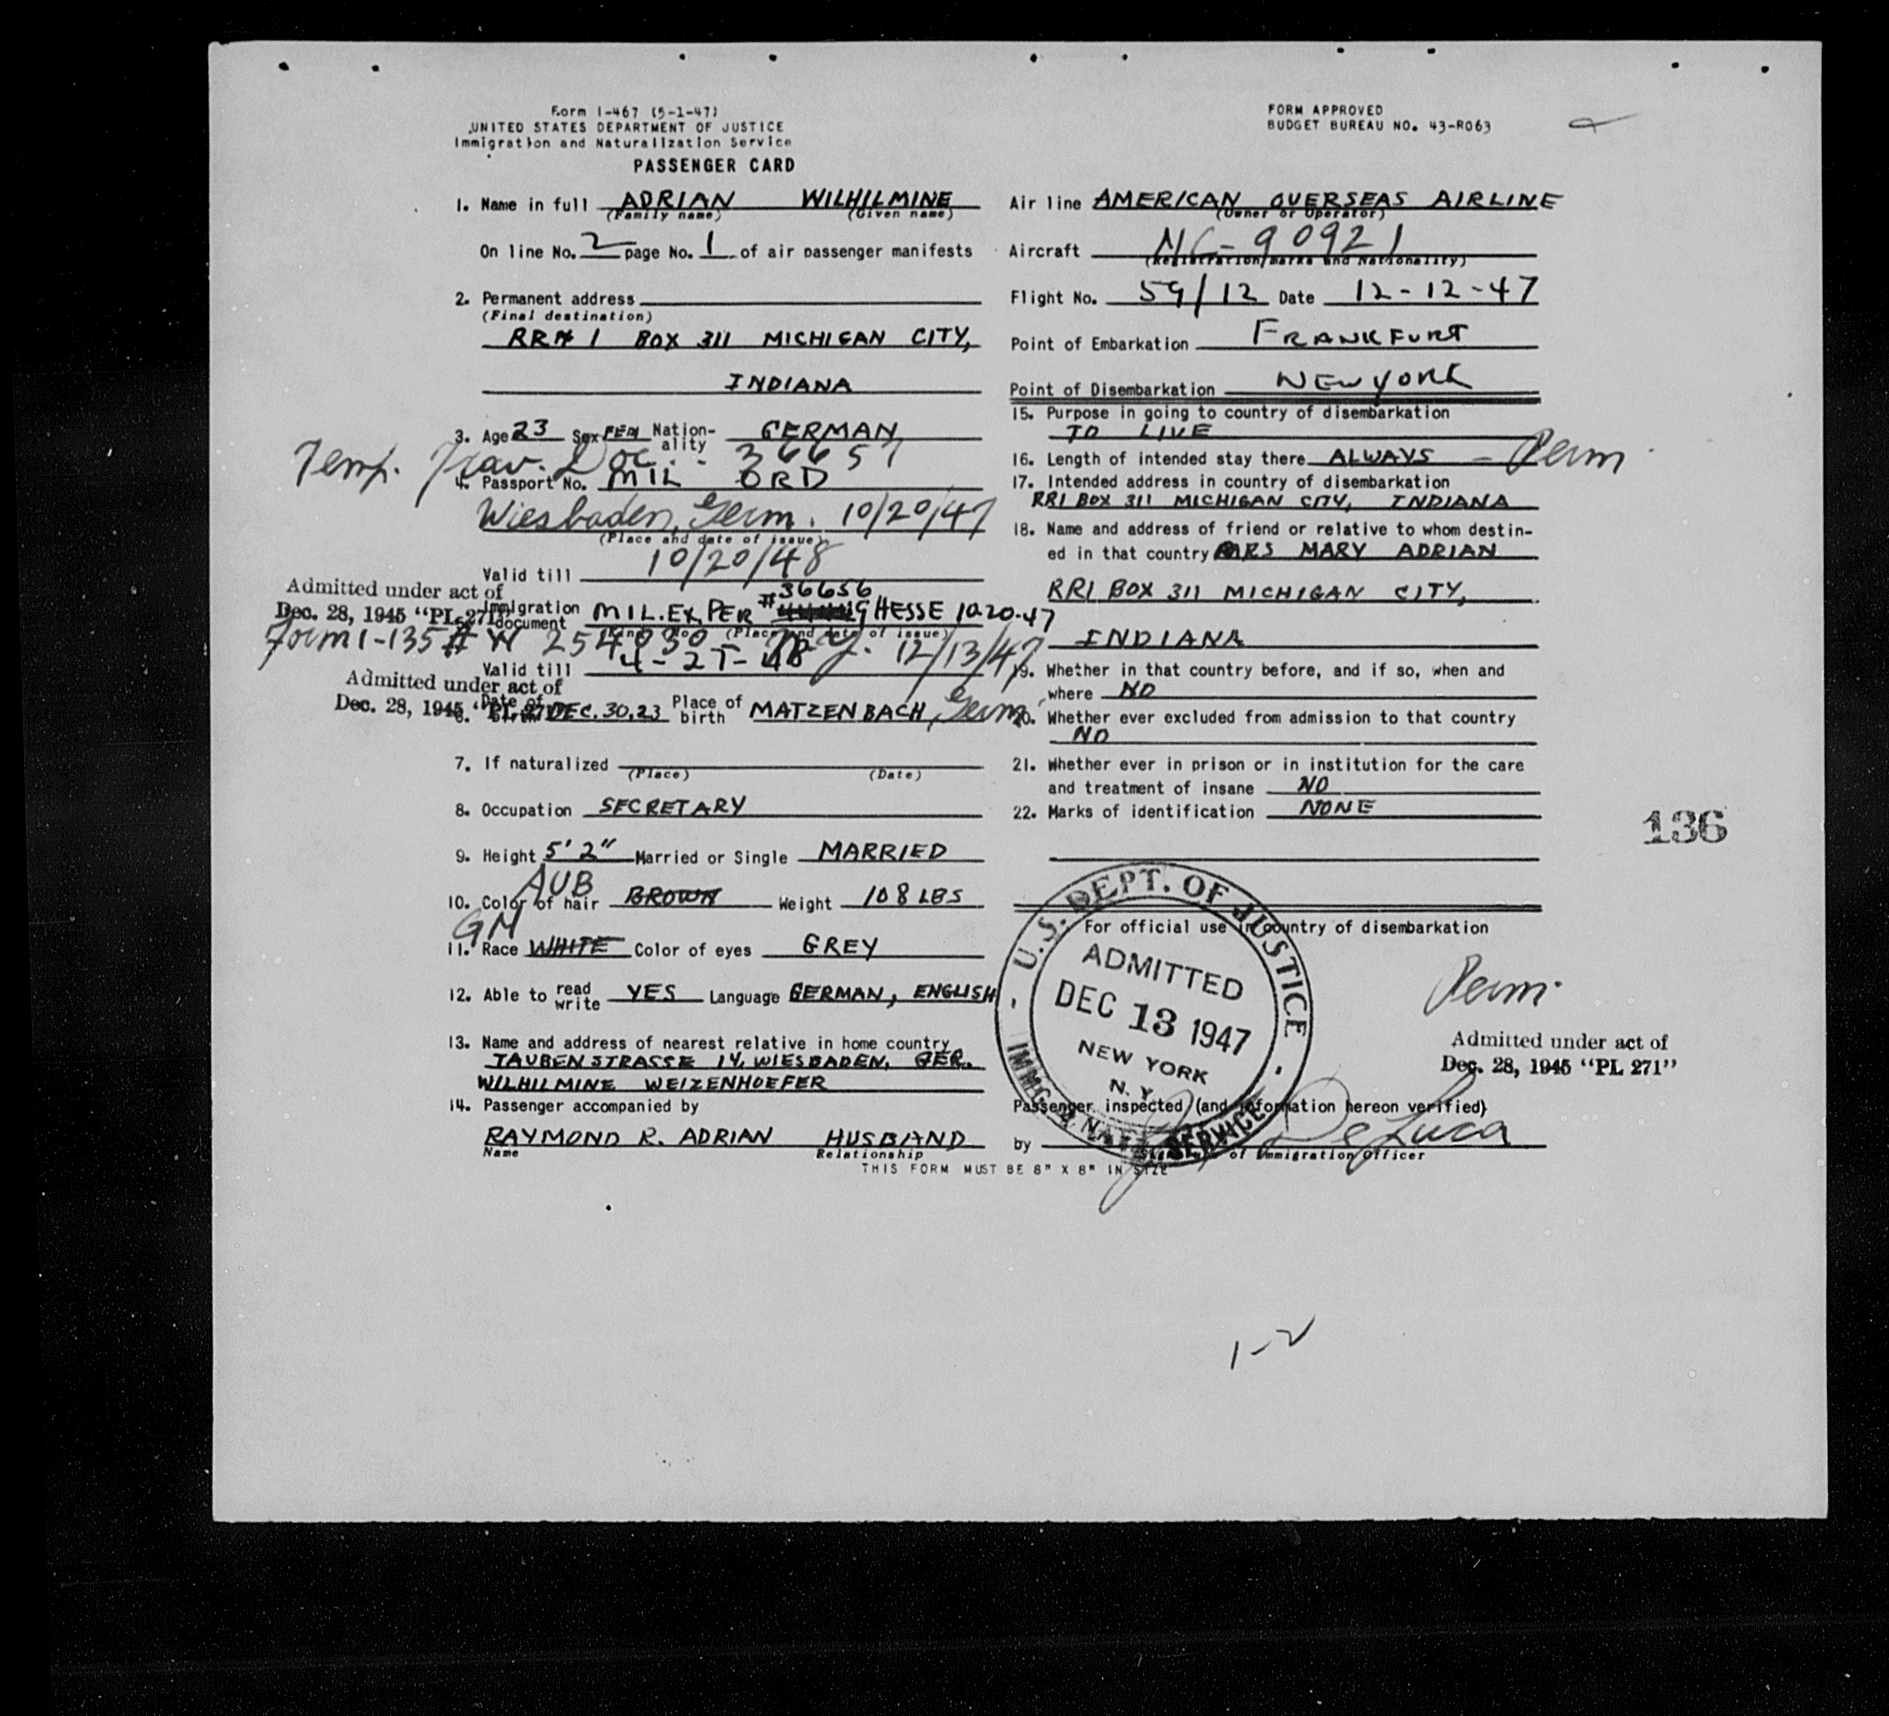 Form I-467 (5-1-47)
UNITED STATES DEPARTMENT OF JUSTICE
Immigration and Naturalization Service
PASSENGER CARD
FORM APPROVED
BUDGET BUREAU NO. 43-R063
1. Name in full ADRIAN WILHILMINE
(Family name) (Given name)
On line No. 2 page No. 1 of air passenger manifests
2. Permanent address
(Final destination)
RR# 1 BOX 311 MICHIGAN CITY,
INDIANA
3. Age 23 Sex FEM Nation-ality GERMAN
Temp. Trav. Doc. 36657
4. Passport No. MIL ORD
Wiesbaden, Germ. 10/20/47
(Place and date of issue)
Valid till 10/20/48
Admitted under act of
Dec. 28, 1945 "PL 271"
#36656
Immigration document MIL. EX. PER HESSE 10-20-47
(Place and date of issue)
Form I-135 # W 254030 N.Y. 12/13/47
Valid till 4-27-48
Admitted under act of
Dec. 28, 1945 "PL 271"
6. Date of birth DEC. 30, 23 Place of birth MATZENBACH, Germ.
7. If naturalized
(Place) (Date)
8. Occupation SECRETARY
9. Height 5' 2" Married or Single MARRIED
AUB
10. Color of hair BROWN Weight 108 LBS
GM
11. Race WHITE Color of eyes GREY
12. Able to read write YES Language GERMAN, ENGLISH
13. Name and address of nearest relative in home country
TAUBENSTRASSE 14, WIESBADEN, GER.
WILHILMINE WEIZENHOEFER
14. Passenger accompanied by
RAYMOND R. ADRIAN HUSBAND
Name Relationship
THIS FORM MUST BE 8" X 8" IN SIZE
Air line AMERICAN OVERSEAS AIRLINE
(Owner or Operator)
Aircraft NC-90921
(Registration marks and Nationality)
Flight No. 59/12 Date 12-12-47
Point of Embarkation FRANKFURT
Point of Disembarkation NEW YORK
15. Purpose in going to country of disembarkation
TO LIVE
16. Length of intended stay there ALWAYS - Perm
17. Intended address in country of disembarkation
RR1 BOX 311 MICHIGAN CITY, INDIANA
18. Name and address of friend or relative to whom destin-
ed in that country MRS MARY ADRIAN
RR1 BOX 311 MICHIGAN CITY,
INDIANA
19. Whether in that country before, and if so, when and
where NO
20. Whether ever excluded from admission to that country
NO
21. Whether ever in prison or in institution for the care
and treatment of insane NO
22. Marks of identification NONE
136
For official use in country of disembarkation
U.S. DEPT. OF JUSTICE
ADMITTED
DEC 13 1947
NEW YORK
N.Y.
IMMG. & NATZ. SERVICE
Perm.
Admitted under act of
Dec. 28, 1945 "PL 271"
Passenger inspected (and information hereon verified)
by De Luca
of Immigration Officer
1-2